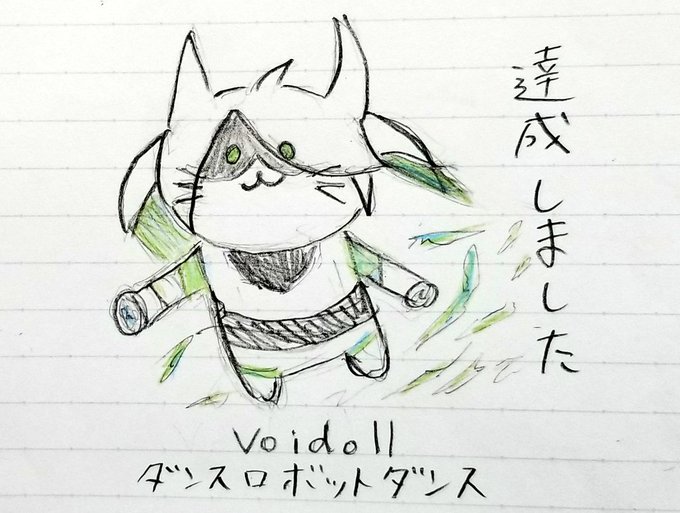 達成しました
Voidoll
ダンスロボットダンス